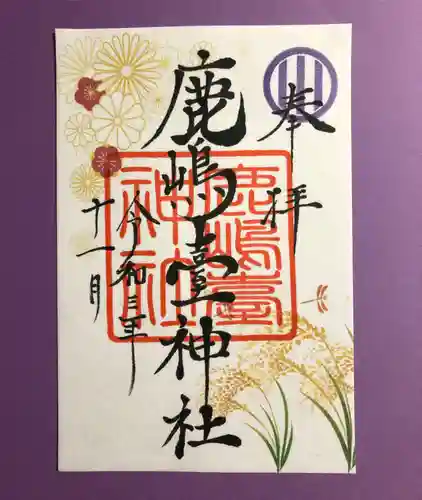 奉拝
鹿嶋臺神社
令和三年
十一月
鹿嶋臺
神社